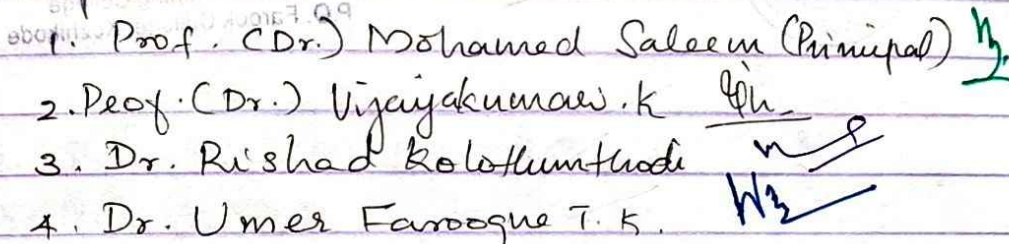 1. Prof. (Dr.) Mohamed Saleem (Principal)
2. Prof. (Dr.) Vijayakumar. K
3. Dr. Rishad Kolothumthodi
4. Dr. Umer Farooque T. K.